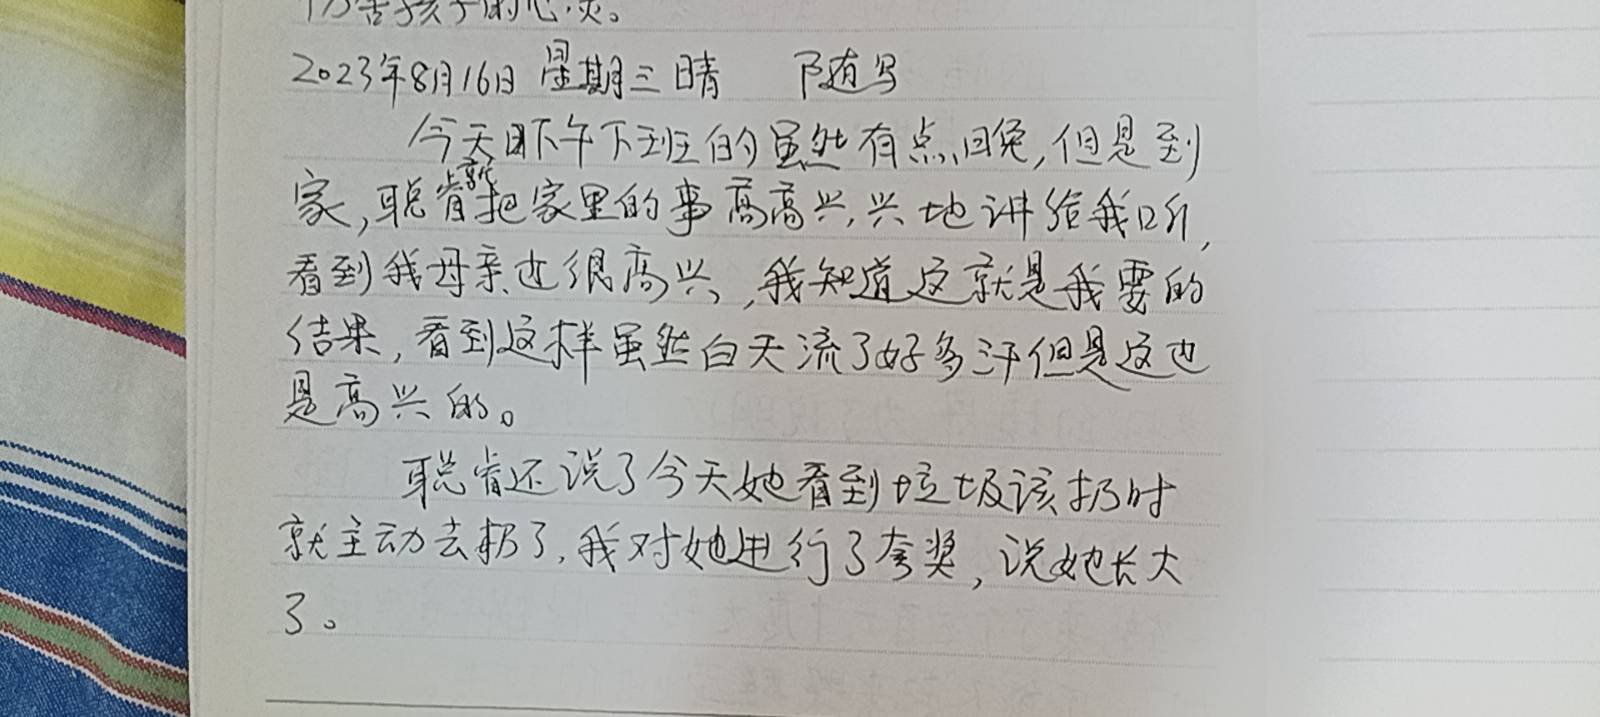 伤害孩子的心灵。
2023年8月16日 星期三 晴 随写
今天下午下班的虽然有点晚,但是到
家,聪睿就把家里的事高高兴兴地讲给我听,
看到我母亲也很高兴,我知道这就是我要的
结果,看到这样虽然白天流了好多汗但是这也
是高兴的。
聪睿还说了今天她看到垃圾该扔时
就主动去扔了,我对她进行了夸奖,说她长大
了。